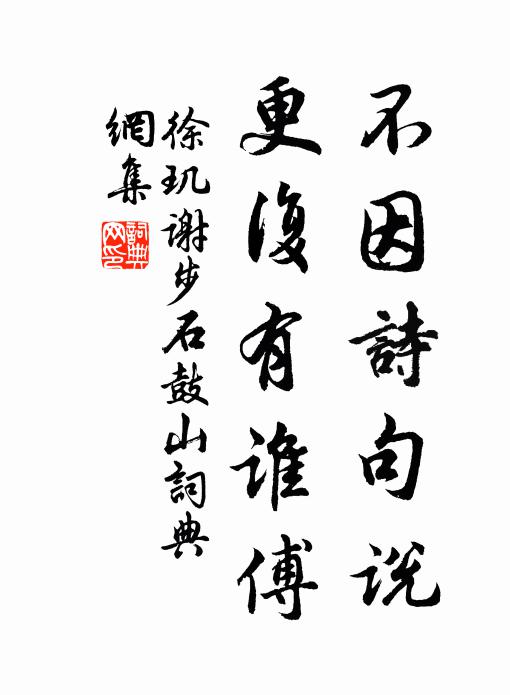 不因詩句説
更復有誰傅
徐玑謝步石鼓山詞典
網集
詞典
网印